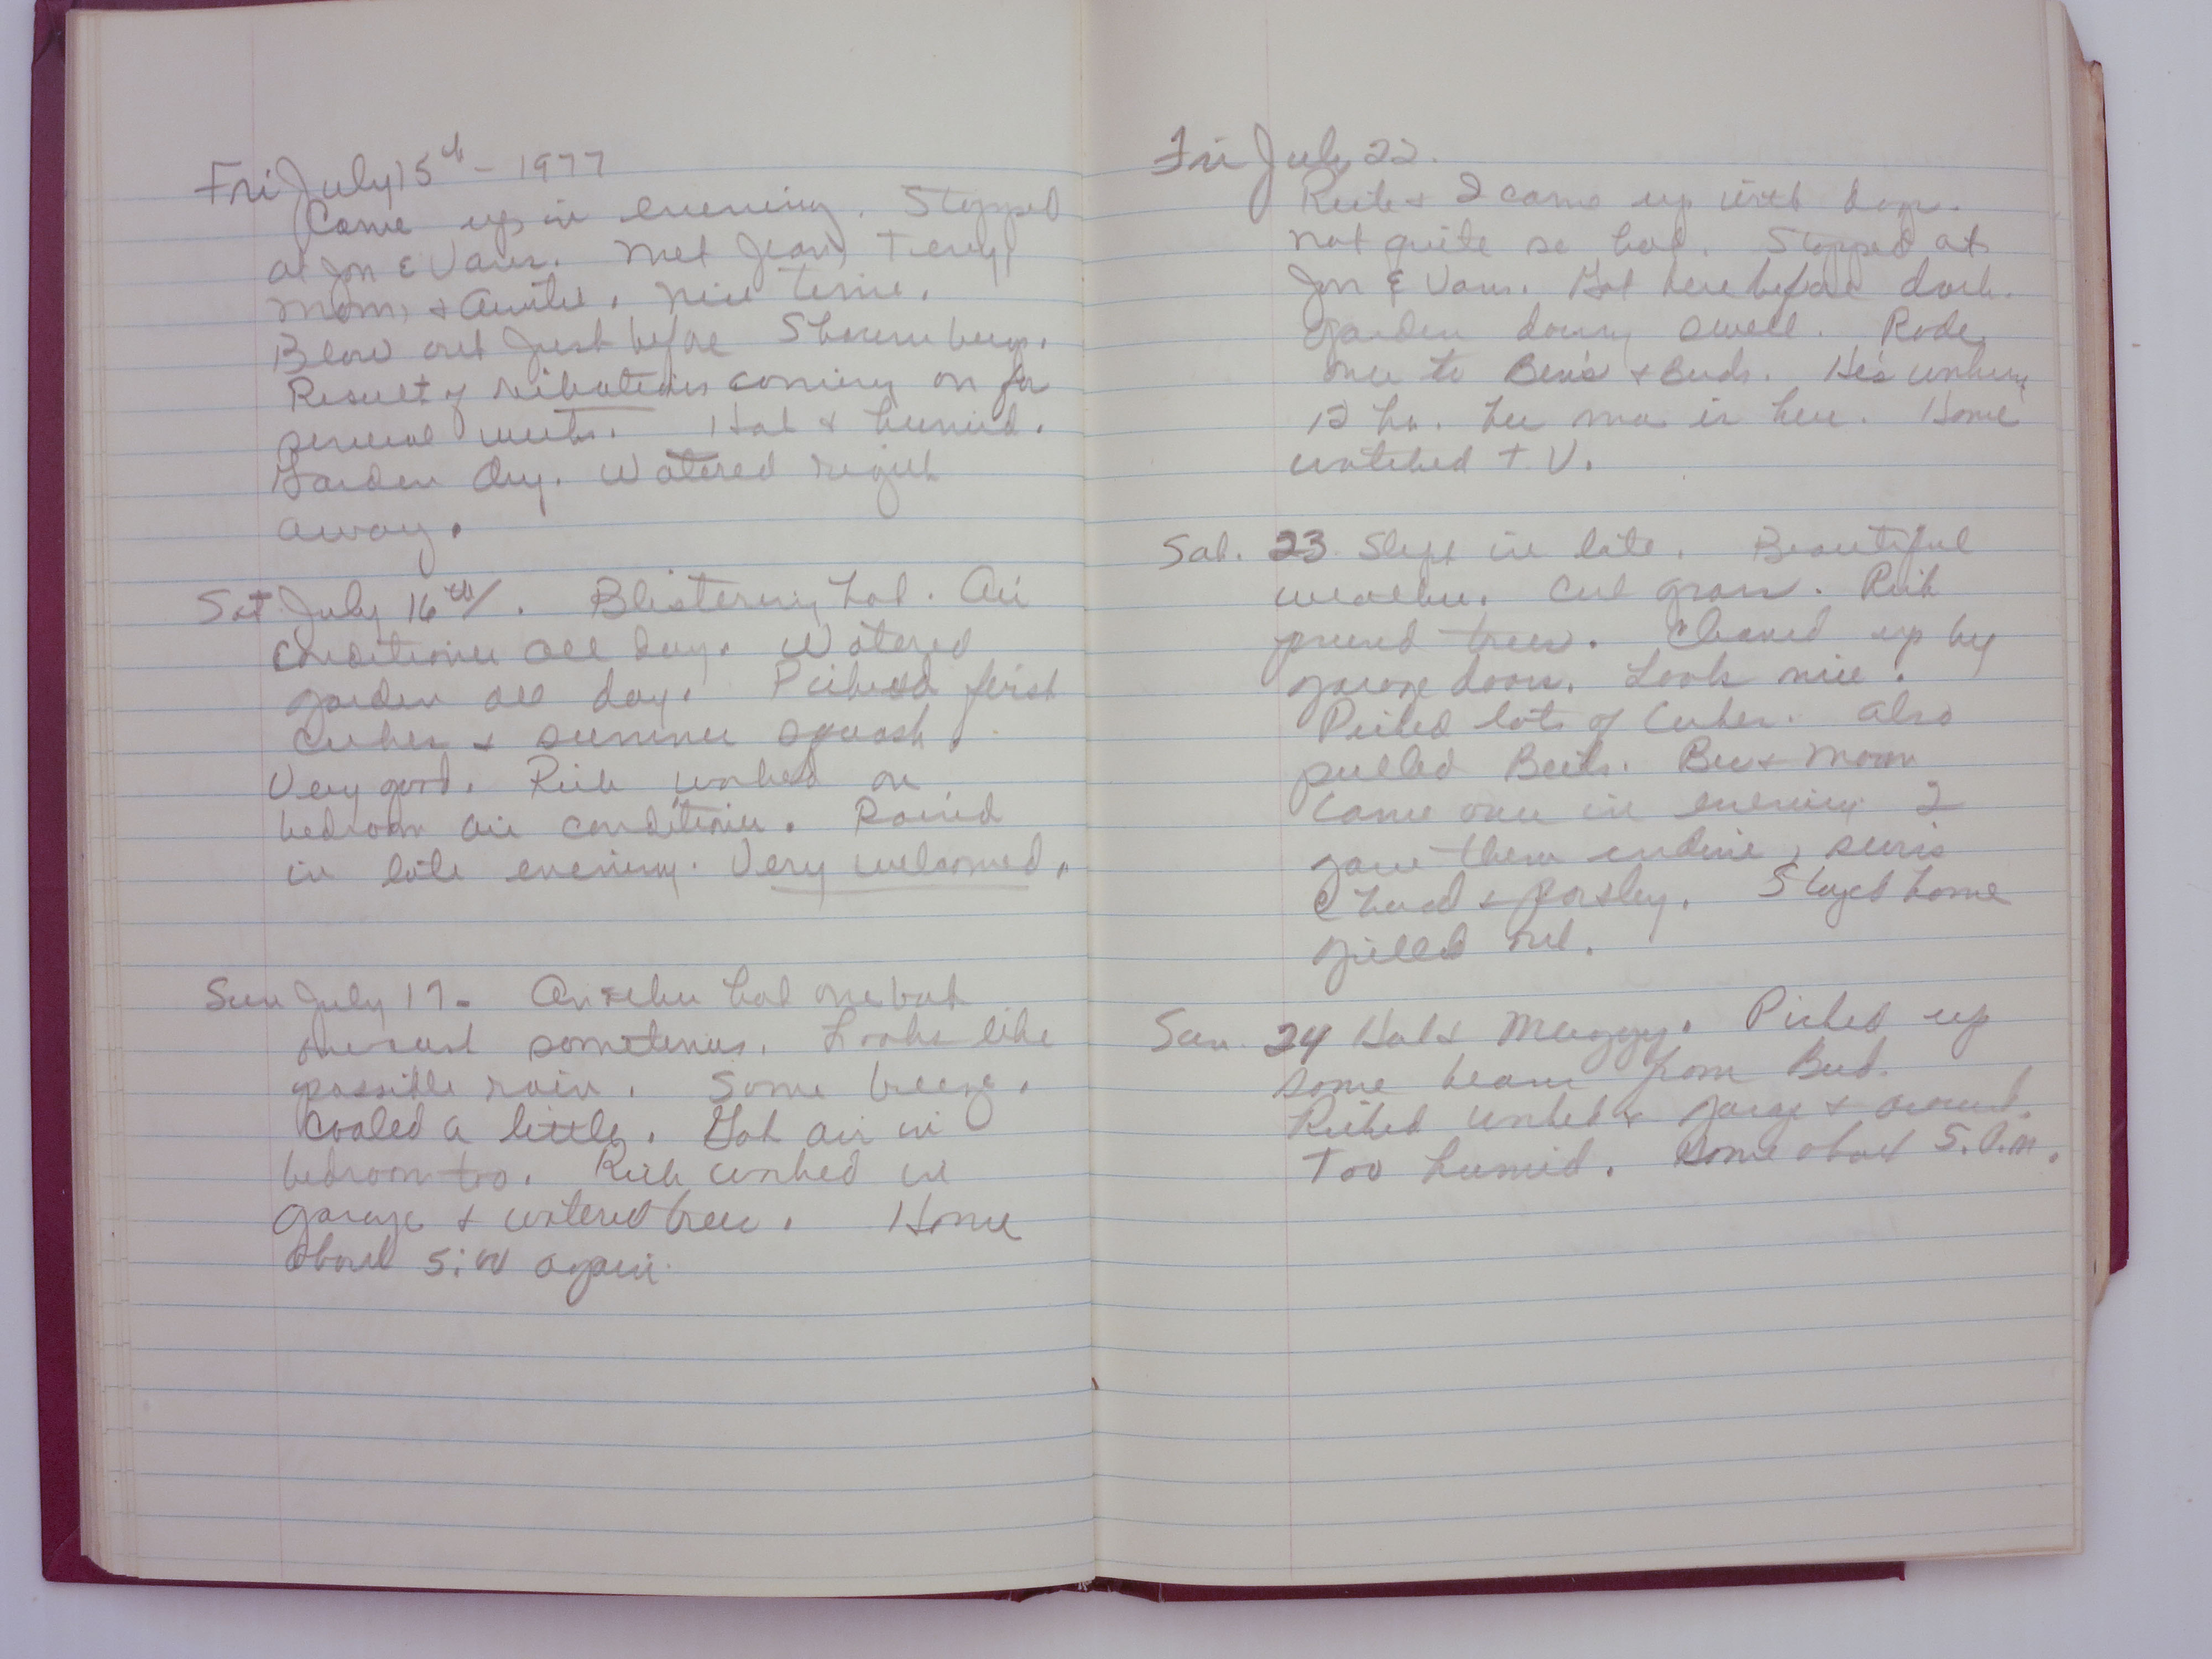 Fri July 15th - 1977
Came up in evening. Stopped
at Jon & Vans. Met Jean, Terry,
Mom, & Auntie. Nice time.
Blow out just before
Result of vibrations coming on for
several weeks. Hot & humid.
Garden dry. Watered right
away.
Sat July 16th. Blistering hot. Air
conditioner all day. Watered
garden all day. Picked first
cukes & summer squash.
Very good. Rich worked on
bedroom air conditioner. Rained
in late evening. Very welcomed.
Sun July 17- Another hot one but
overcast sometimes. Looks like
possible rain. Some breeze.
Cooled a little. Got air in
bedroom too. Rich worked in
garage & watered trees. Home
about 5:00 again.
Fri July 22.
Rich & I came up with dogs.
Not quite so hot. Stopped at
Jon & Vans. Got here before dark.
Garden doing swell. Rode
over to Bev's & Buds. He's working
12 hr. her ma is here. Home
watched T.V.
Sat. 23 Slept in late. Beautiful
weather. Cut grass. Rich
pruned trees. Cleaned up by
garage doors. Looks nice.
Picked lots of cukes. Also
pulled Beets. Bev & Mom
came over in evening I
gave them endive, swiss
chard & parsley. Stayed home
grilled out.
Sun. 24 Hot & Muggy. Picked up
some beans from Bud.
worked garage & around.
Too humid. Home about 5.P.M.